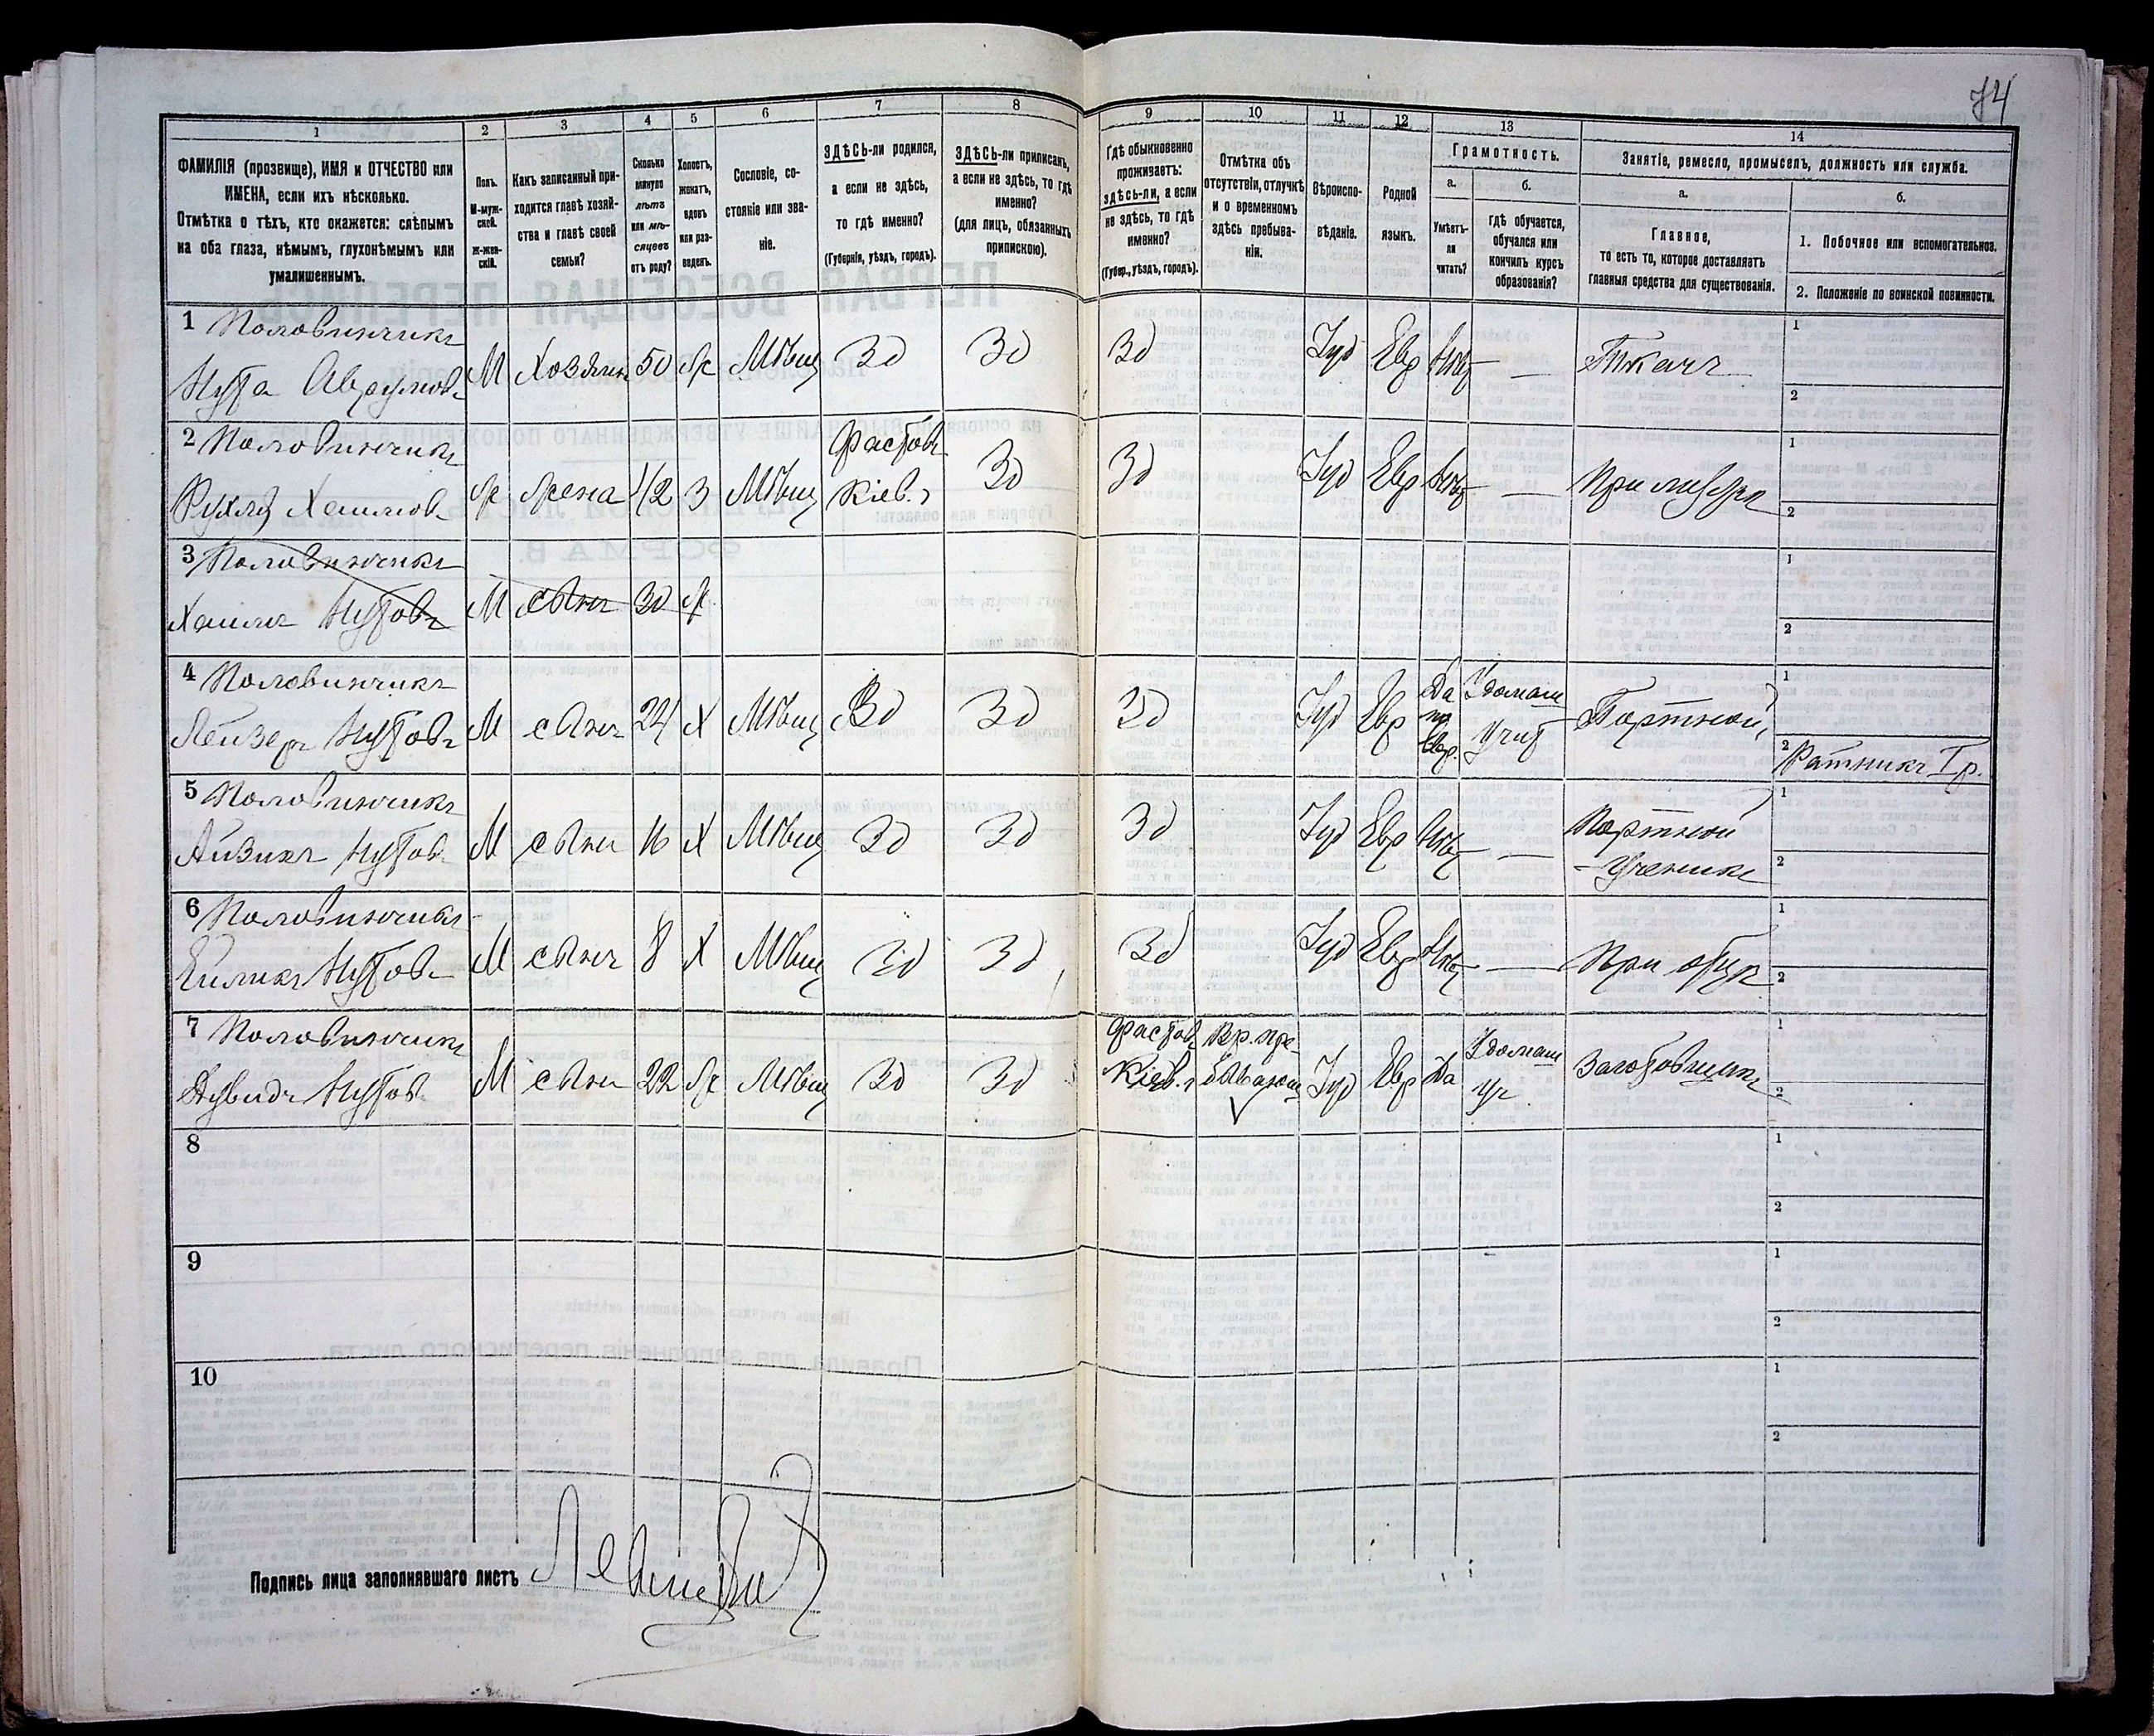 74
1
2
3
4
5
6
7
8
9
10
11
12
13
14
ФАМИЛІЯ (прозвище), ИМЯ и ОТЧЕСТВО или
ИМЕНА, если ихъ нѣсколько.
Отмѣтка о тѣхъ, кто окажется: слѣпымъ
на оба глаза, нѣмымъ, глухонѣмымъ или
умалишеннымъ.
Полъ.
М-муж-
ской.
ж-жен-
скій.
Какъ записанный при-
ходится главѣ хозяй-
ства и главѣ своей
семьи?
Сколько
минуло
лѣтъ
или мѣ-
сяцевъ
отъ роду?
Холостъ,
женатъ,
вдовъ
или раз-
веденъ.
Сословіе, со-
стояніе или зва-
ніе.
ЗДѢСЬ-ли родился,
а если не здѣсь,
то гдѣ именно?
(Губернія, уѣздъ, городъ).
ЗДѢСЬ-ли приписанъ,
а если не здѣсь, то гдѣ
именно?
(для лицъ, обязанныхъ
припискою).
Гдѣ обыкновенно
проживаетъ:
здѣсь-ли, а если
не здѣсь, то гдѣ
именно?
(Губер., уѣздъ, городъ).
Отмѣтка объ
отсутствіи, отлучкѣ
и о временномъ
здѣсь пребыва-
ніи.
Вѣроиспо-
вѣданіе.
Родной
языкъ.
Грамотность.
а.
Умѣетъ-
ли
читать?
б.
гдѣ обучается,
обучался или
кончилъ курсъ
образованія?
Занятіе, ремесло, промыселъ, должность или служба.
а.
Главное,
то есть то, которое доставляетъ
главныя средства для существованія.
б.
1. Побочное или вспомогательное.
2. Положеніе по воинской повинности.
1 Половинчикъ
Нута Аврумов. М Хозяин 50 ж Мѣщ Зд Зд Зд Іуд Евр Нѣт — Ткачъ
1
2
2 Половинчикъ Фастовъ
Рухля Хаимов. ж жена 42 З Мѣщ Кіев. г Зд Зд Іуд Евр Нѣт — При мужѣ
1
2
3 Половинчикъ
Хаимъ Нутовъ М сынъ 30 ж
1
2
4 Половинчикъ Да У домаш
Лейзеръ Нутовъ М сынъ 24 Х Мѣщ Зд Зд Зд Іуд Евр по Евр. учит Портной
1
2 Ратникъ I р.
5 Половинчикъ Портной
Айзикъ Нутов. М сынъ 16 Х Мѣщ Зд Зд Зд Іуд Евр Нѣт — - Ученикъ
1
2
6 Половинчикъ
Нутов. М сынъ 8 Х Мѣщ Зд Зд Зд Іуд Евр Нѣт — При отцѣ
1
2
7 Половинчикъ Фастовъ Вр. пре- У домаш
Дувидъ Нутов. М сынъ 22 ж Мѣщ Зд Зд Кіев. г бываюш Іуд Евр Да уч. Заготовщикъ
1
2
8
1
2
9
1
2
10
1
2
Подпись лица заполнявшаго листъ